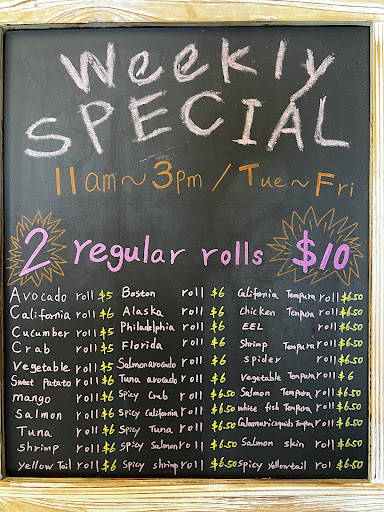 Weekly
SPECIAL
11am~3pm / Tue~Fri
2 regular rolls $10
Avocado roll $5 Boston roll $6 California Tempura roll $6.50
California roll $6 Alaska roll $6 Chicken Tempura roll $6.50
Cucumber roll $5 Philadelphia roll $6 EEL roll $6.50
Crab roll $5 Florida roll $6 Shrimp Tempura roll $6.50
Vegetable roll $5 Salmon avocado roll $6 Spider roll $6.50
Sweet Potato roll $6 Tuna avocado roll $6 Vegetable Tempura roll $6
mango roll $6 Spicy Crab roll $6.50 Salmon Tempura roll $6.50
Salmon roll $6 Spicy California roll $6.50 White fish Tempura roll $6.50
Tuna roll $6 Spicy Tuna roll $6.50 Calamari squids Tempura roll $6.50
shrimp roll $6 Spicy Salmon roll $6.50 Salmon skin roll $6.50
yellow Tail roll $6 Spicy shrimp roll $6.50 Spicy yellowtail roll $6.50